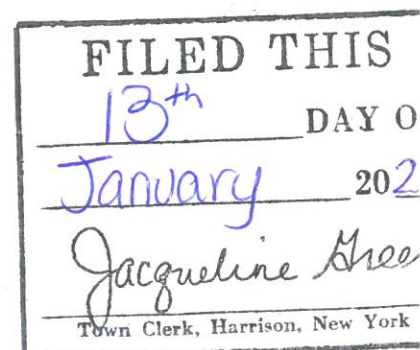 FILED THIS
13th DAY O
January 202
Jacqueline Gree
Town Clerk, Harrison, New York